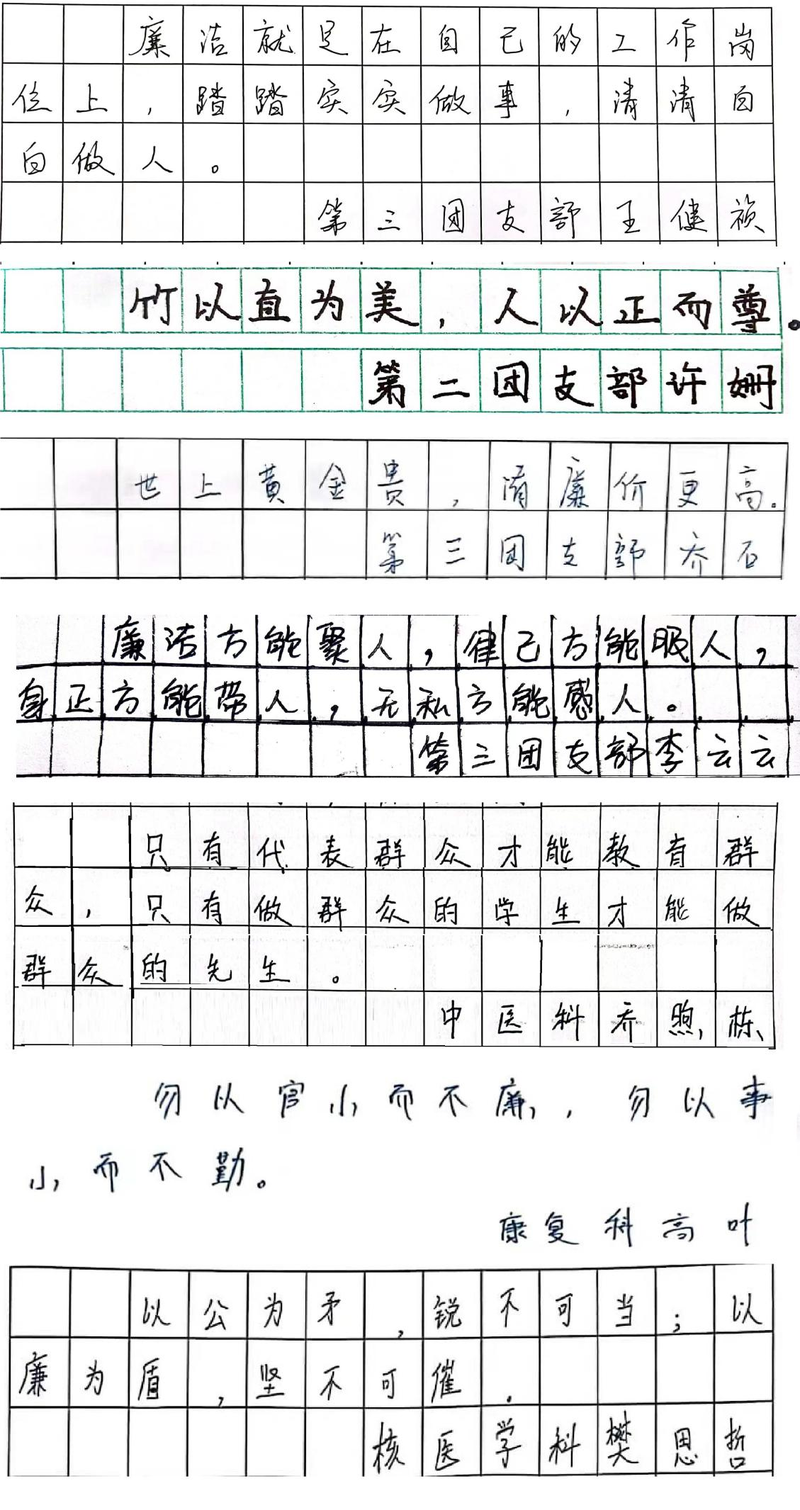 廉洁就是在自己的工作岗
位上，踏踏实实做事，清清白
白做人。
第三团支部王健祯
竹以直为美，人以正而尊。
第二团支部许姗
世上黄金贵，清廉价更高。
第三团支部乔石
廉洁方能聚人，律己方能服人，
身正方能带人，无私方能感人。
第三团支部李云云
只有代表群众才能教育群
众，只有做群众的学生才能做
群众的先生。
中医科乔煦栋
勿以官小而不廉，勿以事
小而不勤。
康复科高叶
以公为矛，锐不可当；以
廉为盾，坚不可催。
核医学科樊思哲